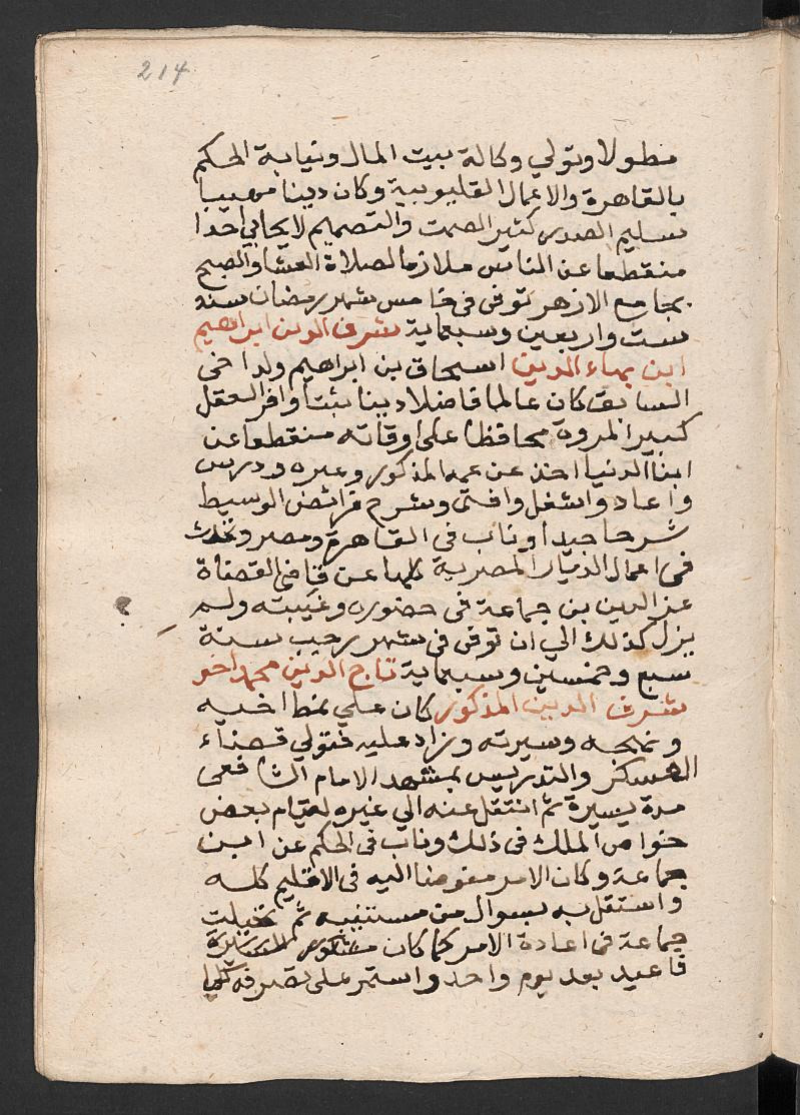 214
مطولا وتولي وكالة بيت المال ونيابة الحكم
بالقاهرة والاعمال القليوبية وكان دينا مهيبا
سليم الصدر كثير الصمت والتصميم لا يحابي احدا
منقطعا عن الناس ملازما لصلاة العشا والصبح
بجامع الازهر توفى فى خامس شهر رمضان سنه
ست واربعين وسبعماية شرف الدين ابراهيم
ابن بهاء الدين اسحاق بن ابراهيم ولد اخى
السابق كان عالما فاضلا دينا ثبتا وافر العقل
كثير المروة محافظا على اوقاته منقطعا عن
ابنا الدنيا اخذ عن عمه المذكور وغيره ودرس
واعاد واشغل وافتى وشرح فرائض الوسيط
شرحا جيدا وناب فى القاهرة ومصر وتحدث
فى اعمال الديار المصرية كلها عن قاضى القضاة
عز الدين بن جماعة فى حضوره وغيبته ولم
يزل كذلك الي ان توفى فى شهر رجب سنة
سبع وخمسين وسبعماية تاج الدين محمد اخو
شرف الدين المذكور كان علي نمط اخيه
ونهجه وسيرته وزاد عليه فتولي قضاء
العسكر والتدريس بمشهد الامام الشافعى
مدة يسيرة ثم انتقل عنه الي غيره لقيام بعض
خواص الملك فى ذلك وناب فى الحكم عن ابن
جماعة وكان الامر مفوضا اليه فى الاقليم كله
واستقل به بسوال من مستنيبه ثم تحيلت
جماعة فى اعادة الامر كما كان
فاعيد بعد يوم واحد واستمر على تصرفه